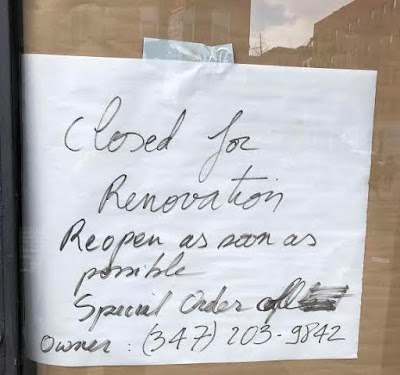 Closed for
Renovation
Reopen as soon as
possible
Special Order
Owner : (347) 203-9842